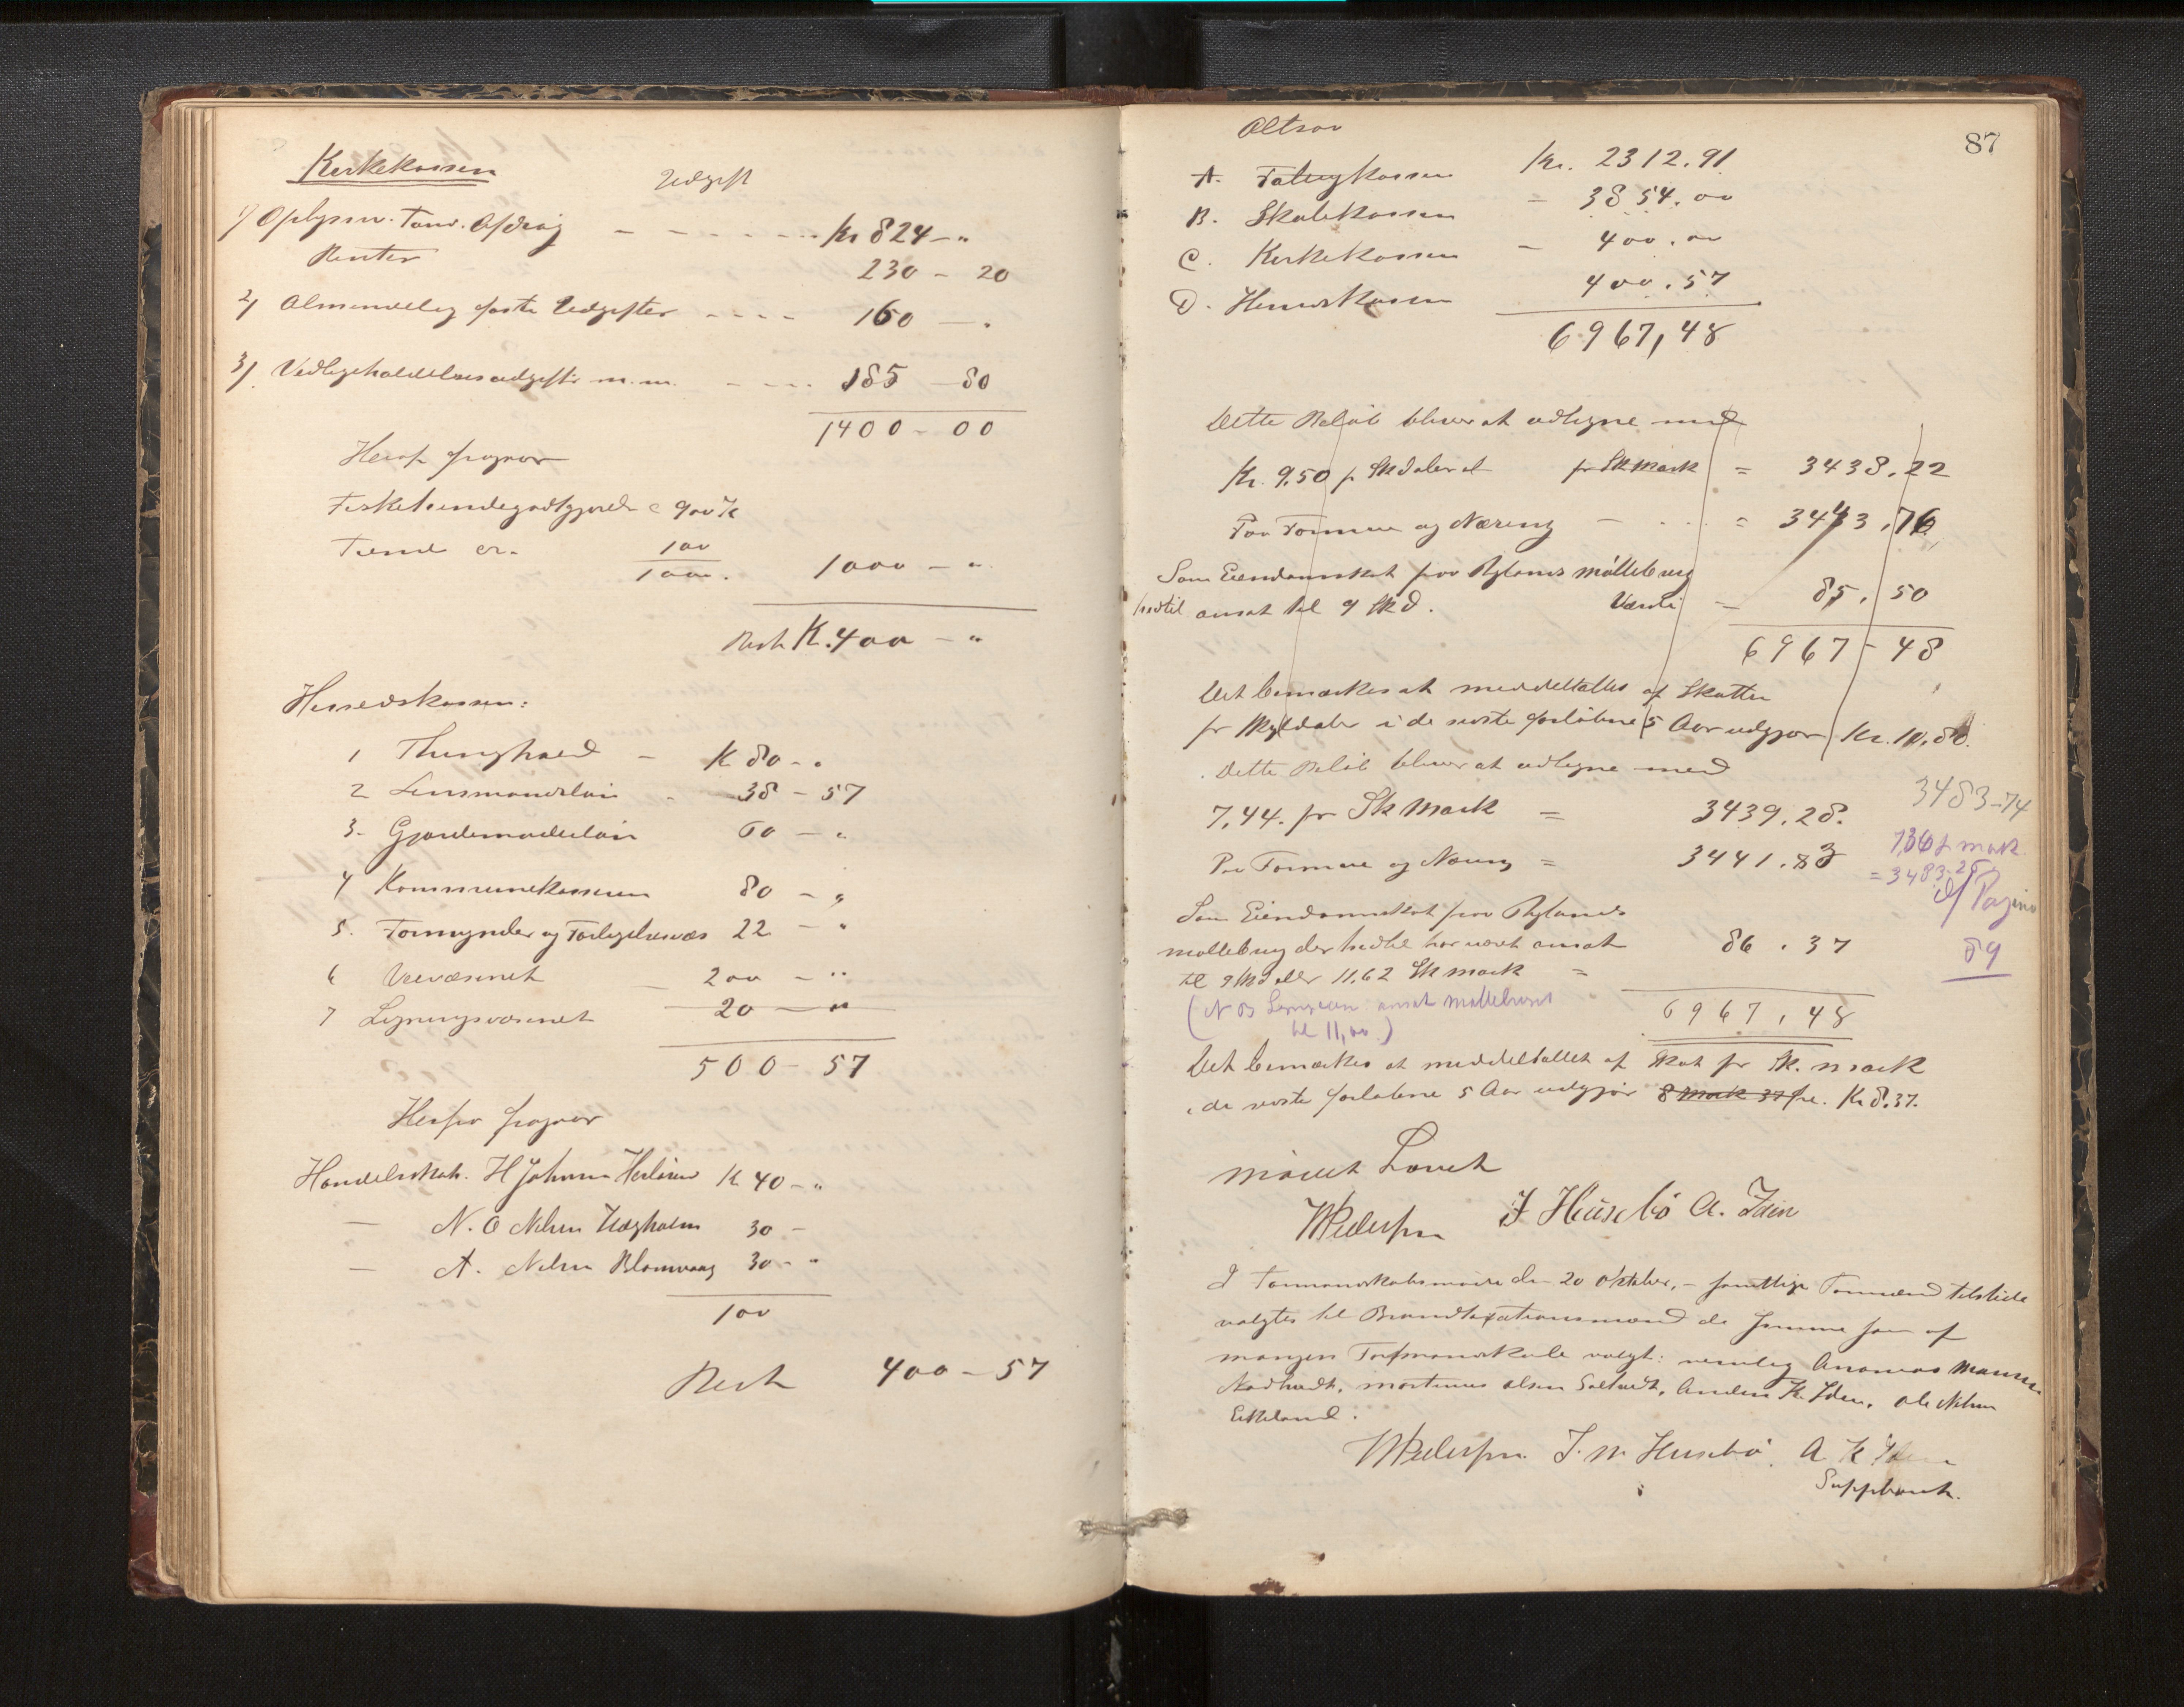 Kirkekassen
Udgift
1/ Oplysnv. Fond. Afdrag - - - - - - Kr 824 - "
Renter 230 - 20
2/ Almindelig faste Udgifter - - - - 160 - "
3/ Vedligeholdelsesudgifter m.m. - - - - 185 - 80
1400 - 00
Heraf fragaar
Fisketiendegodtgjørelse 900 K
Tiende Kr. 100
1000. 1000 - "
Rest K. 400 - "
Herredskassen:
1 Thinghold - K 80 - "
2 Lensmandsløn - 38 - 57
3. Gjordemoderløn 60 - "
4 Kommunekasseren 80 - "
5. Formynder og Forligelsesvæs 22 - "
6 Veivæsenet - 200 - "
7 Ligningsvæsenet 20 - "
500 - 57
Herfra fragaar
Handelsskat. H Johnsen Herløver K 40 - "
— N. O Nilsen Hægholm 30 -
— A. Nilsen Blomvaag 30 - "
100
Rest 400 - 57
87
Altsaa
A. Fattigkassen Kr. 2312.91
B. Skolekassen - 3854.00
C. Kirkekassen - 400.00
D. Herredskassen 400.57
6967,48
Dette Beløb bliver at udligne med
Kr. 9,50 p Skdaler el pr Sk Mark = 3438.22
Paa Formue og Næring - = 3443,76
Som Eiendomsskat paa Rylands Møllebrug
hidtil ansat til 9 Skd. Værdi - 85, 50
6967 - 48
Det bemærkes at middeltallet af Skatten
pr Skyldaler i de sidste forløbne 5 Aar udgjør Kr. 10,80.
Dette Beløb bliver at udligne med
7,44. pr Sk Mark = 3439.28.
3483-74
Paa Formue og Næring = 3441.83
7,36 p mark
= 3483.25
Som Eiendomsskat paa Rylands
cf Pagina
møllebrug der hidtil har været ansat 86.37
89
til 9 Skd eller 11,62 Sk mark =
(N B ansat Møllebruget
til 11,00.)
6967,48
Det bemærkes at middeltallet af Skat pr Sk. mark
i de sidste forløbne 5 Aar udgjør 8 Mark 37 øre. Kr 8.37.
Mødet Hævet
MPedersen J Husebø A. Iden
I Formandskabsmøde den 20 Oktober, - samtlige Formænd tilstede
valgtes til Brandtaxationsmænd de samme som af
mangen Formandskab valgt: nemlig Ananias Monsen
Nordhuedt, Martinus Olsen Sæltvedt, Anders K. Iden, Ole Nilsen
Eikeland.
MPedersen. J. M. Husebø. A K Iden
Suppleant.